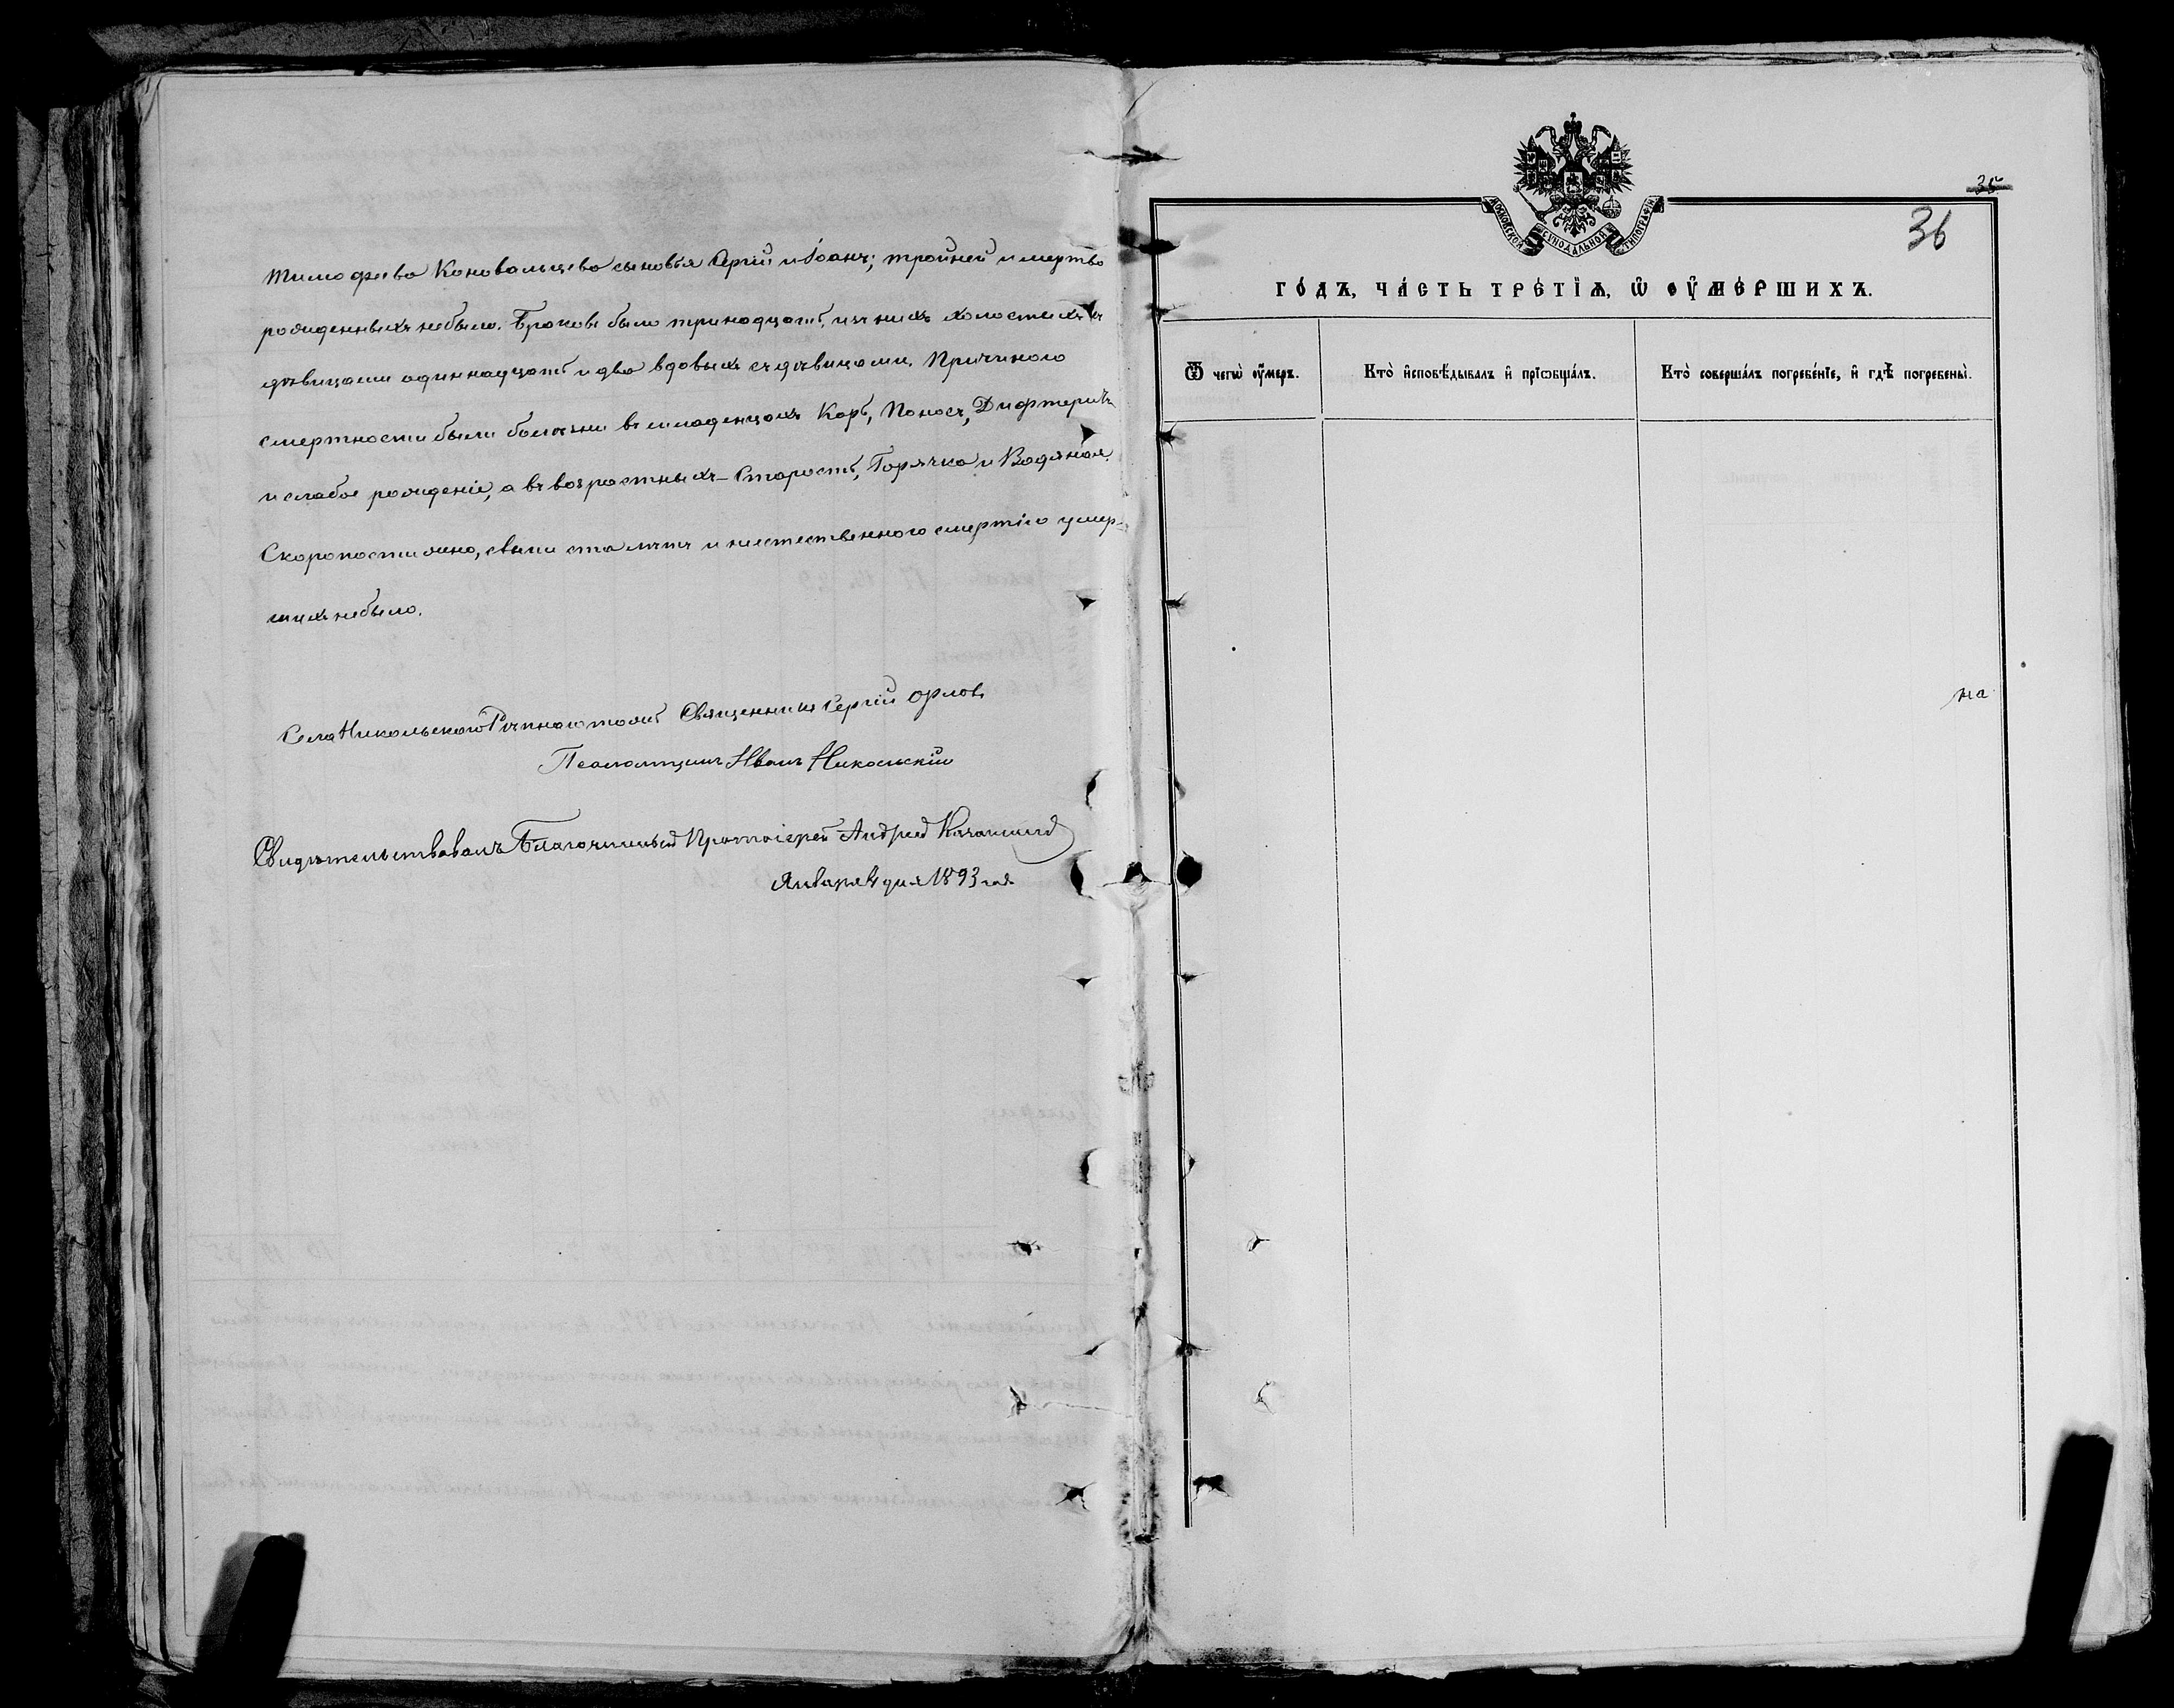 Тимофеева Коновальцева сыновья Сергій и Іоаннъ; тройней и мертво
рожденныхъ небыло. Браковъ было тринадцать, изъ нихъ холостыхъ съ
дѣвицами одиннадцать и два вдовыхъ съ дѣвицами. Причиною
смертности были болѣзни въ младенцахъ Корь, Поносъ, Дифтеритъ
и слабое рожденіе, а въ возрастныхъ - Старость, Горячка и Водяная.
Скоропостижно, свыше ста лѣтъ и неестественною смертію умер-
шихъ небыло.
Села Никольскаго тожъ Священникъ Сергій Орловъ
Псаломщикъ Иванъ Никольскій
Свидѣтельствовалъ Благочинный Протоіерей Андрей
Января 4 дня 1893 года
МОСКОВСКОЙ СѴНОДАЛЬНОЙ ТИПОГРАФІИ
35
36
ГО́ДЪ, ЧА́СТЬ ТРЕ́ТЇѦ, Ѡ҆ ОУ҆МЕ́РШИХЪ.
Ѿ чегѡ̀ оу҆́меръ.
Кто̀ и҆сповѣ́дывалъ и҆ прїѡбща́лъ.
Кто̀ соверша́лъ погребе́нїе, и҆ гдѣ̀ погребены̀.
на